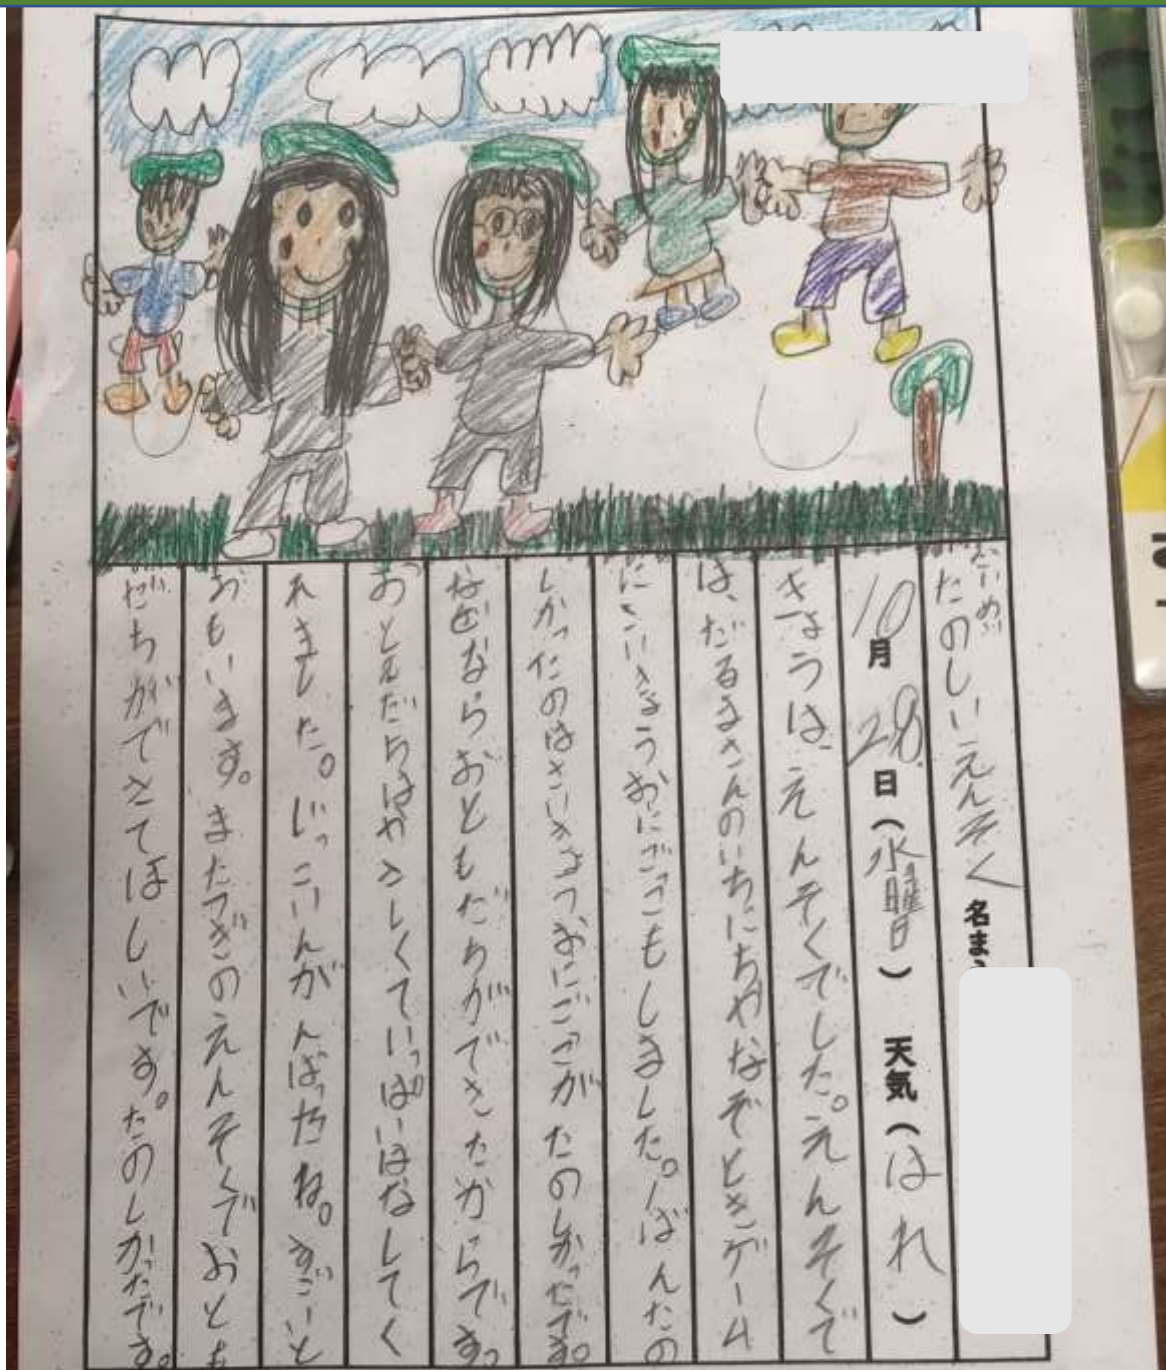 たのしいえんそく 名ま
10月28日(水曜日) 天気(はれ)
きょうは、えんそくでした。えんそくで
は、だるまさんのいちにちやなぞときゲーム
にさいきょうおにごっこもしました。1ばんたの
しかったのはさいきょうおにごっこがたのしかったです。
なぜならおともだちができたからです。
おともだちはやさしくていっぱいはなしてく
れました。じっこいんがんばったね。すごいと
おもいます。またつぎのえんそくでおとも
だちができてほしいです。たのしかったです。